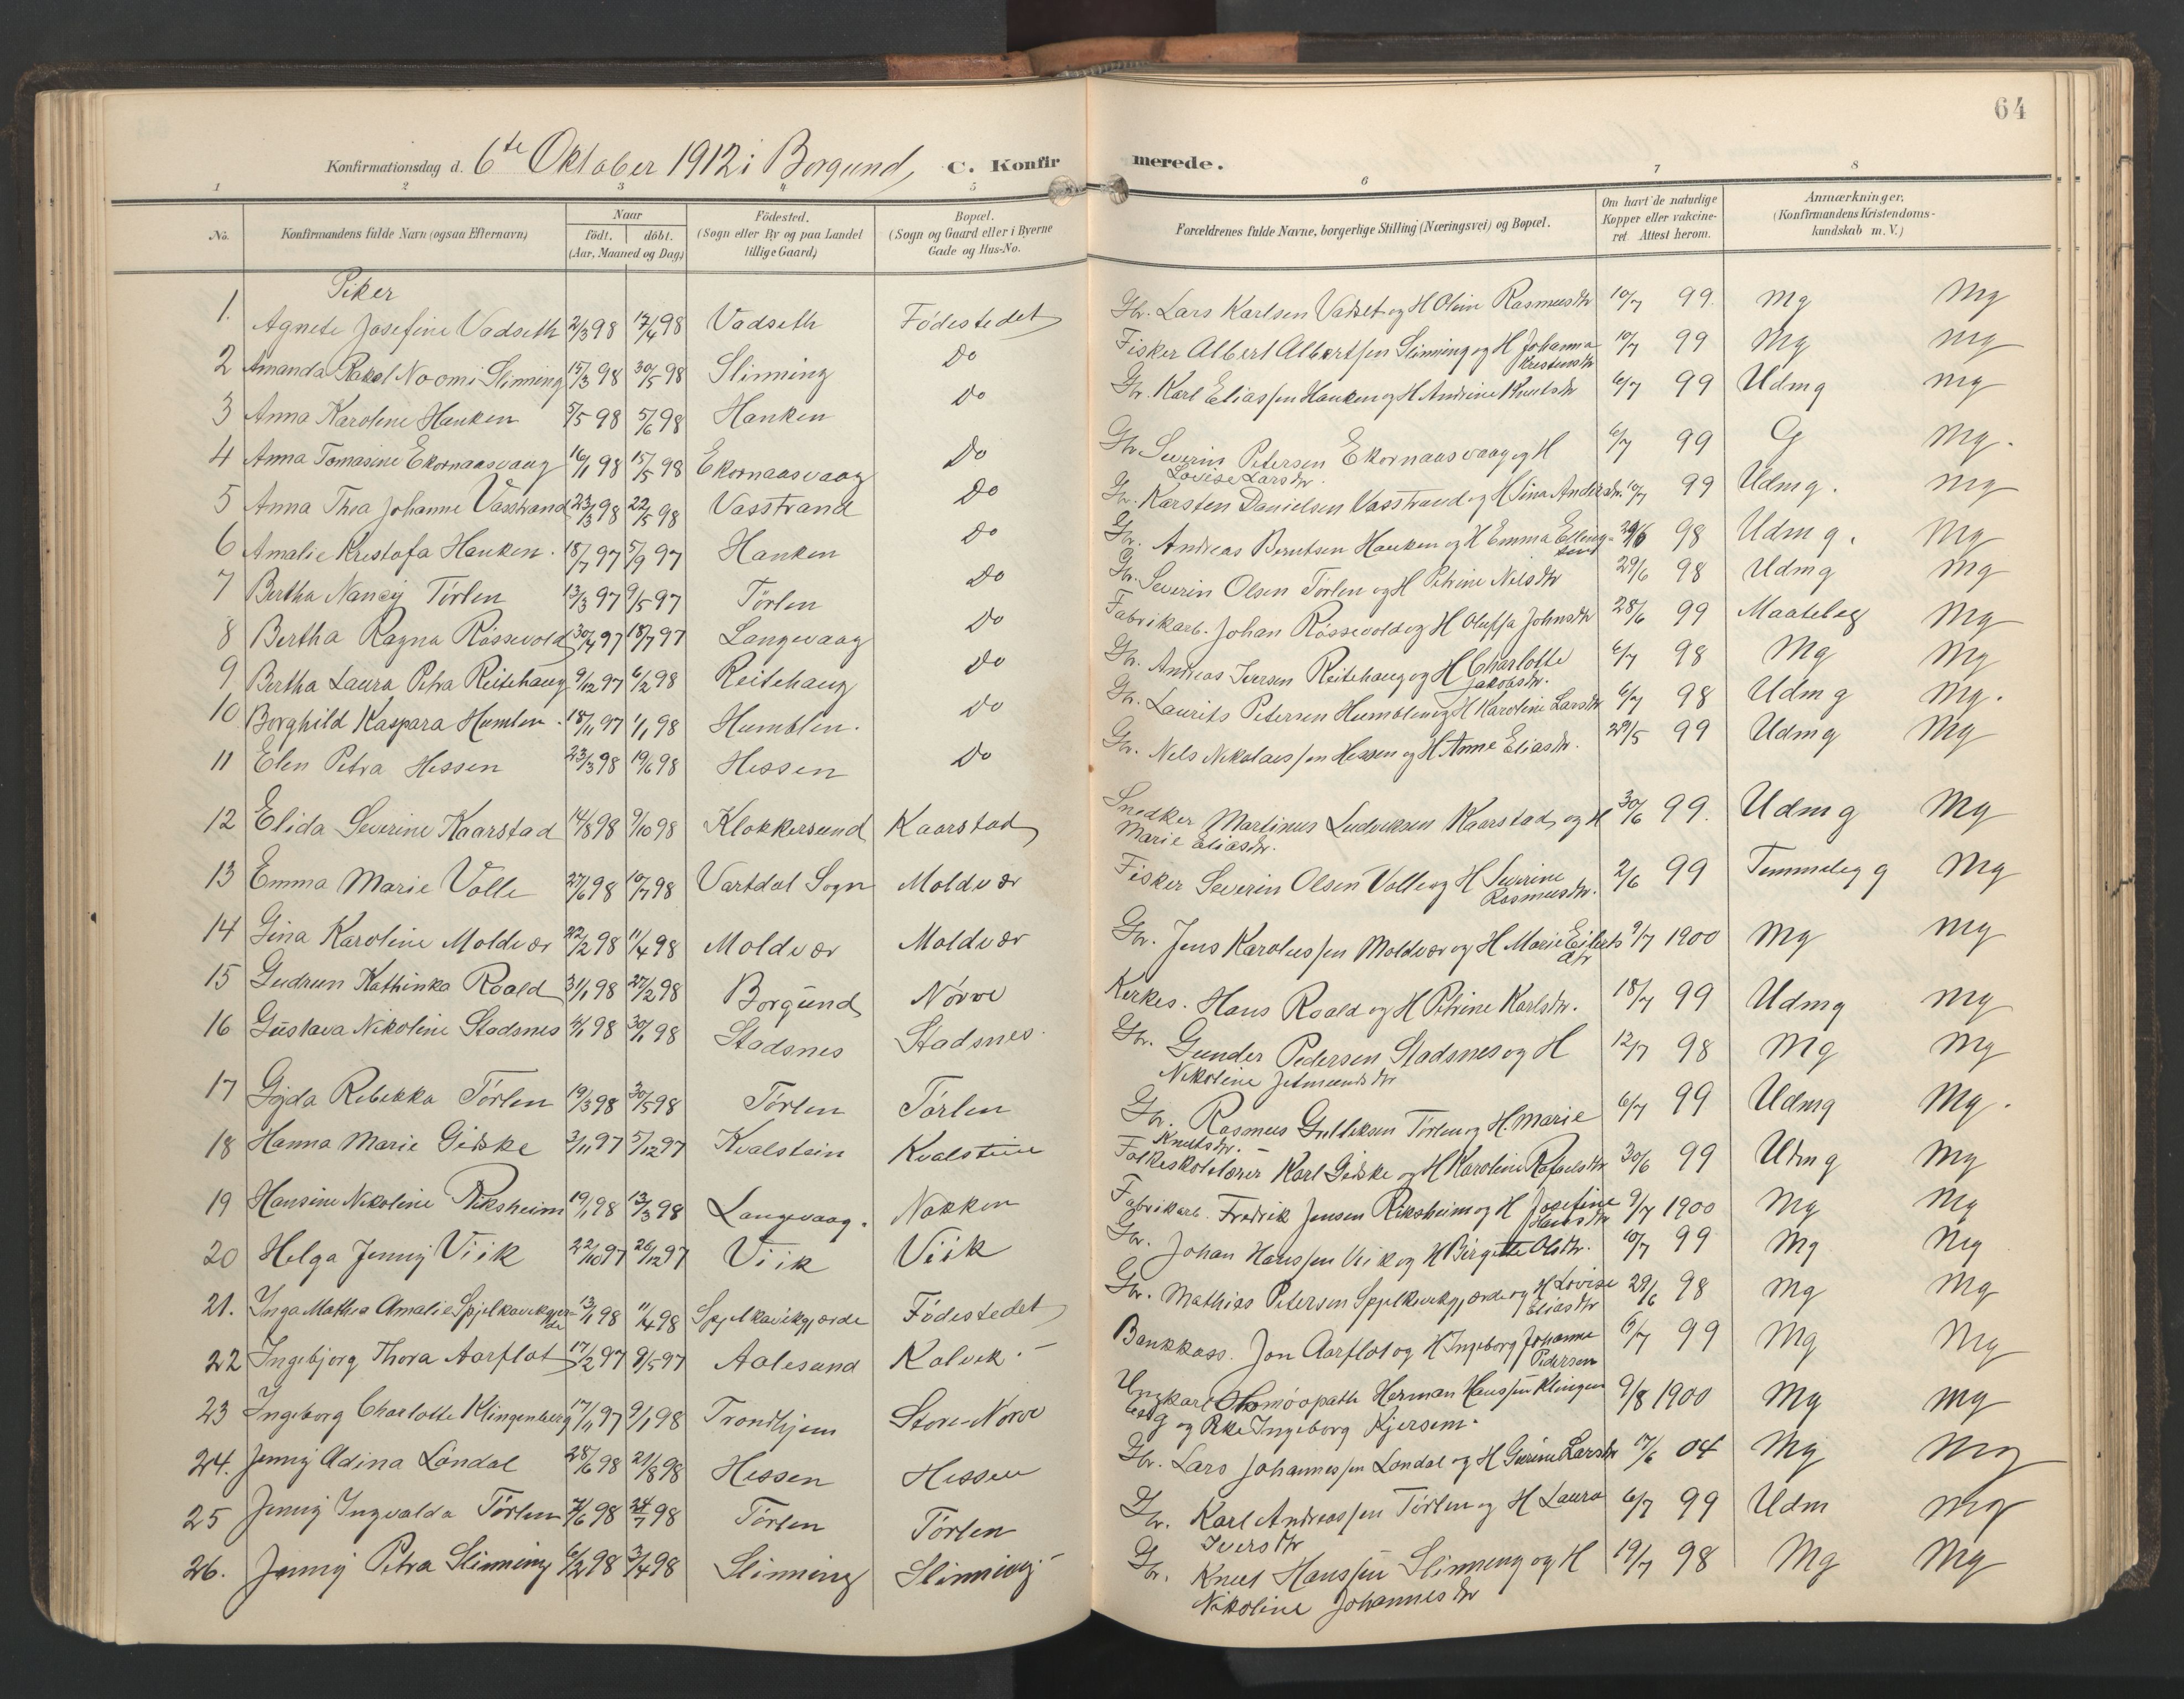 64
Konfirmationsdag d. 6te Oktober 1912 i Borgund, C. Konfirmerede.
1 2 3 4 5 6 7 8
No. Konfirmandens fulde Navn (ogsaa Efternavn) Naar födt. döbt. (Aar, Maaned og Dag) Födested. (Sogn eller By og paa Landet tillige Gaard) Bopæl. (Sogn og Gaard eller i Byerne Gade og Hus-No. Forældrenes fulde Navne, borgerlige Stilling (Næringsvei) og Bopæl. Om havt de naturlige Kopper eller vakcineret Attest herom. Anmærkninger, (Konfirmandens Kristendomskundskab m. V.)
Piker
1. Agnete Josefine Vadseth 2/3 98 17/4 98 Vadseth Födestedet Gbr. Lars Karlsen Vadset og H Oline Rasmusdtr 10/7 99. Mg Mg
2 Amanda Rakel Noomi Slinning 15/3 98 30/5 98 Slinning Do Fisker Albert Albertsen Slinning og H Johanna Kristensdtr 10/7 99 Mg Mg
3 Anna Karoline Hauken 5/5 98 5/6 98 Hauken Do Gbr. Karl Eliassen Hauken og H Andrine Knutsdtr 6/7 99 Udmg Mg
4 Anna Tomasine Ekornaasvaag 16/1 98 15/5 98 Ekornaasvaag Do Gbr Severin Petersen Ekornaasvaag og H Lovise Larsdtr. 6/7 99 G Mg.
5 Anna Thea Johanne Vasstrand 23/3 98 22/5 98 Vasstrand Do Gbr. Karsten Danielsen Vasstrand og H Sina Andersdtr. 10/7 99 Udmg. Mg
6 Amalie Kristofa Hauken. 18/7 97 5/9 97 Hauken Do Gbr. Andreas Berntsen Hauken og H Emma Ellingsdtr 29/6 98 Udmg. Mg
7 Bertha Nancy Törlen 13/3 97 9/5 97 Törlen Do Gbr. Severin Olsen Törlen og H Petrine Nilsdtr 29/6 98 Udmg Mg
8 Bertha Ragna Rössevold 30/4 97 18/7 97 Langevaag Do Fabrikarb. Johan Rössevold og H Oluffa Johnsdtr 28/6 99 Maateleg Mg
9 Bertha Laura Petra Reitehaug 9/12 97 6/2 98 Reitehaug Do Gbr. Andreas Iversen Reitehaug og H Charlotte Jakobsdtr. 6/7 98 Mg Mg
10 Borghild Kaspara Humlen. 18/11 97 1/1 98 Humblen. Do Gbr. Laurits Petersen Humblen og H Karoline Larsdtr 6/7 98 Udmg Mg.
11 Elen Petra Hessen 23/3 98 19/6 98 Hessen Do Gbr. Nels Nikolaissen Hessen og H Anne Eliasdtr. 29/5 99 Udmg Mg
12 Elida Severine Kaarstad 14/8 98 9/10 98 Klokkersund Kaarstad Snedker Martinus Ludviksen Kaarstad og H Marie Eliasdtr. 30/6 99. Udmg Mg
13 Emma Marie Volle 27/6 98 10/7 98 Vartdal Sogn Moldvær Fisker Severin Olsen Volle og H Severine Rasmusdtr. 2/6 99 Temmeleg g Mg
14 Gina Karoline Moldvær 22/2 98 11/4 98 Moldvær Moldvær Gbr. Jens Karolussen Moldvær og H Marie Eilertsdtr 9/7 1900 Mg Mg
15 Gudrun Kathinka Roald 31/1 98 27/2 98 Borgund Nörve Kirkes. Hans Roald og H Petrine Karlsdtr. 18/7 99 Udmg Mg
16 Gustava Nikoline Stadsnes 4/1 98 30/1 98 Stadsnes Stadsnes. Gbr. Gunder Pedersen Stadsnes og H Nikoline Jetmundsdtr 12/7 98 Mg Mg
17 Gyda Rebekka Törlen 19/3 98 30/5 98 Törlen Törlen Gbr. Rasmus Gulliksen Törlen og H. Marie Knutsdtr. 6/7 99 Udmg Mg.
18 Hanna Marie Giske 3/11 97 5/12 97 Kvalstein Kvalstein Folkeskolelærer Karl Giske og H Karoline Rafaelsdtr 30/6 99 Udmg Mg
19 Hansine Nikoline Riksheim 19/1 98 13/3 98 Langevaag. Nakken Fabrikarb. Fredrik Jensen Riksheim og H Josefine Hansdtr 9/7 1900 Mg Mg
20 Helga Jenny Viik 22/10 97 26/12 97 Viik Viik Gbr. Johan Hanssen Viik og H Birgitte Olsdtr. 10/7 99 Mg Mg
21. Inga Mathea Amalie Spjelkavikgjerde 13/1 98 11/4 98 Spjelkavikgjærde Födestedet Gbr. Mathias Petersen Spjelkavikgjærde og H Lovise Eliasdtr 29/6 98 Mg Mg
22 Ingebjorg Thora Aarflot 17/2 97 9/5 97 Aalesund Kalvik. Bankkass. Jon Aarflot og H Ingeborg Johanne Pedersen 6/7 99 Mg Mg
23 Ingeborg Charlotte Klingenberg 17/11 97 9/1 98 Trondhjem Store-Nörve Ungkarl Homöopath Herman Hanssen Klingenberg og Pke Ingeborg Kjersem. 9/8 1900 Mg Mg
24. Jenny Adina Löndal 28/6 98 21/8 98 Hessen Hessen Gbr. Lars Johannessen Löndal og H Gurine Larsdtr 17/6 04 Mg Mg
25 Jenny Ingvalda Törlen 7/6 98 24/7 98 Törlen Törlen Gbr. Karl Andreassen Törlen og H Laura Iversdtr 6/7 99 Udm Mg
26. Jenny Petra Slinning 6/2 98 3/4 98 Slinning Slinning Gbr. Knut Hanssen Slinning og H Nikoline Johannesdtr 19/7 98 Mg Mg